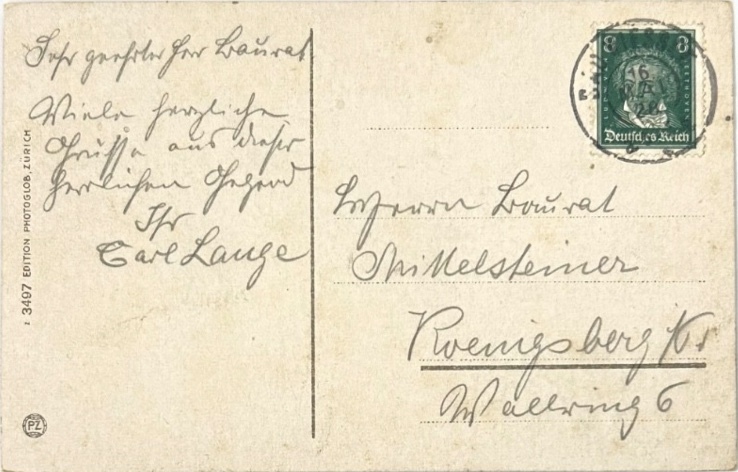 Sehr geehrter Herr Baurat
Viele herzliche
Grüsse aus dieser
herrlichen Gegend
Ihr
Carl Lange
z 3497 EDITION PHOTOGLOB, ZÜRICH
PZ
8 8
LUDWIG VAN BEETHOVEN
Deutsches Reich
16
28
Herrn Baurat
Mittelsteiner
Koenigsberg Pr
Wallring 6